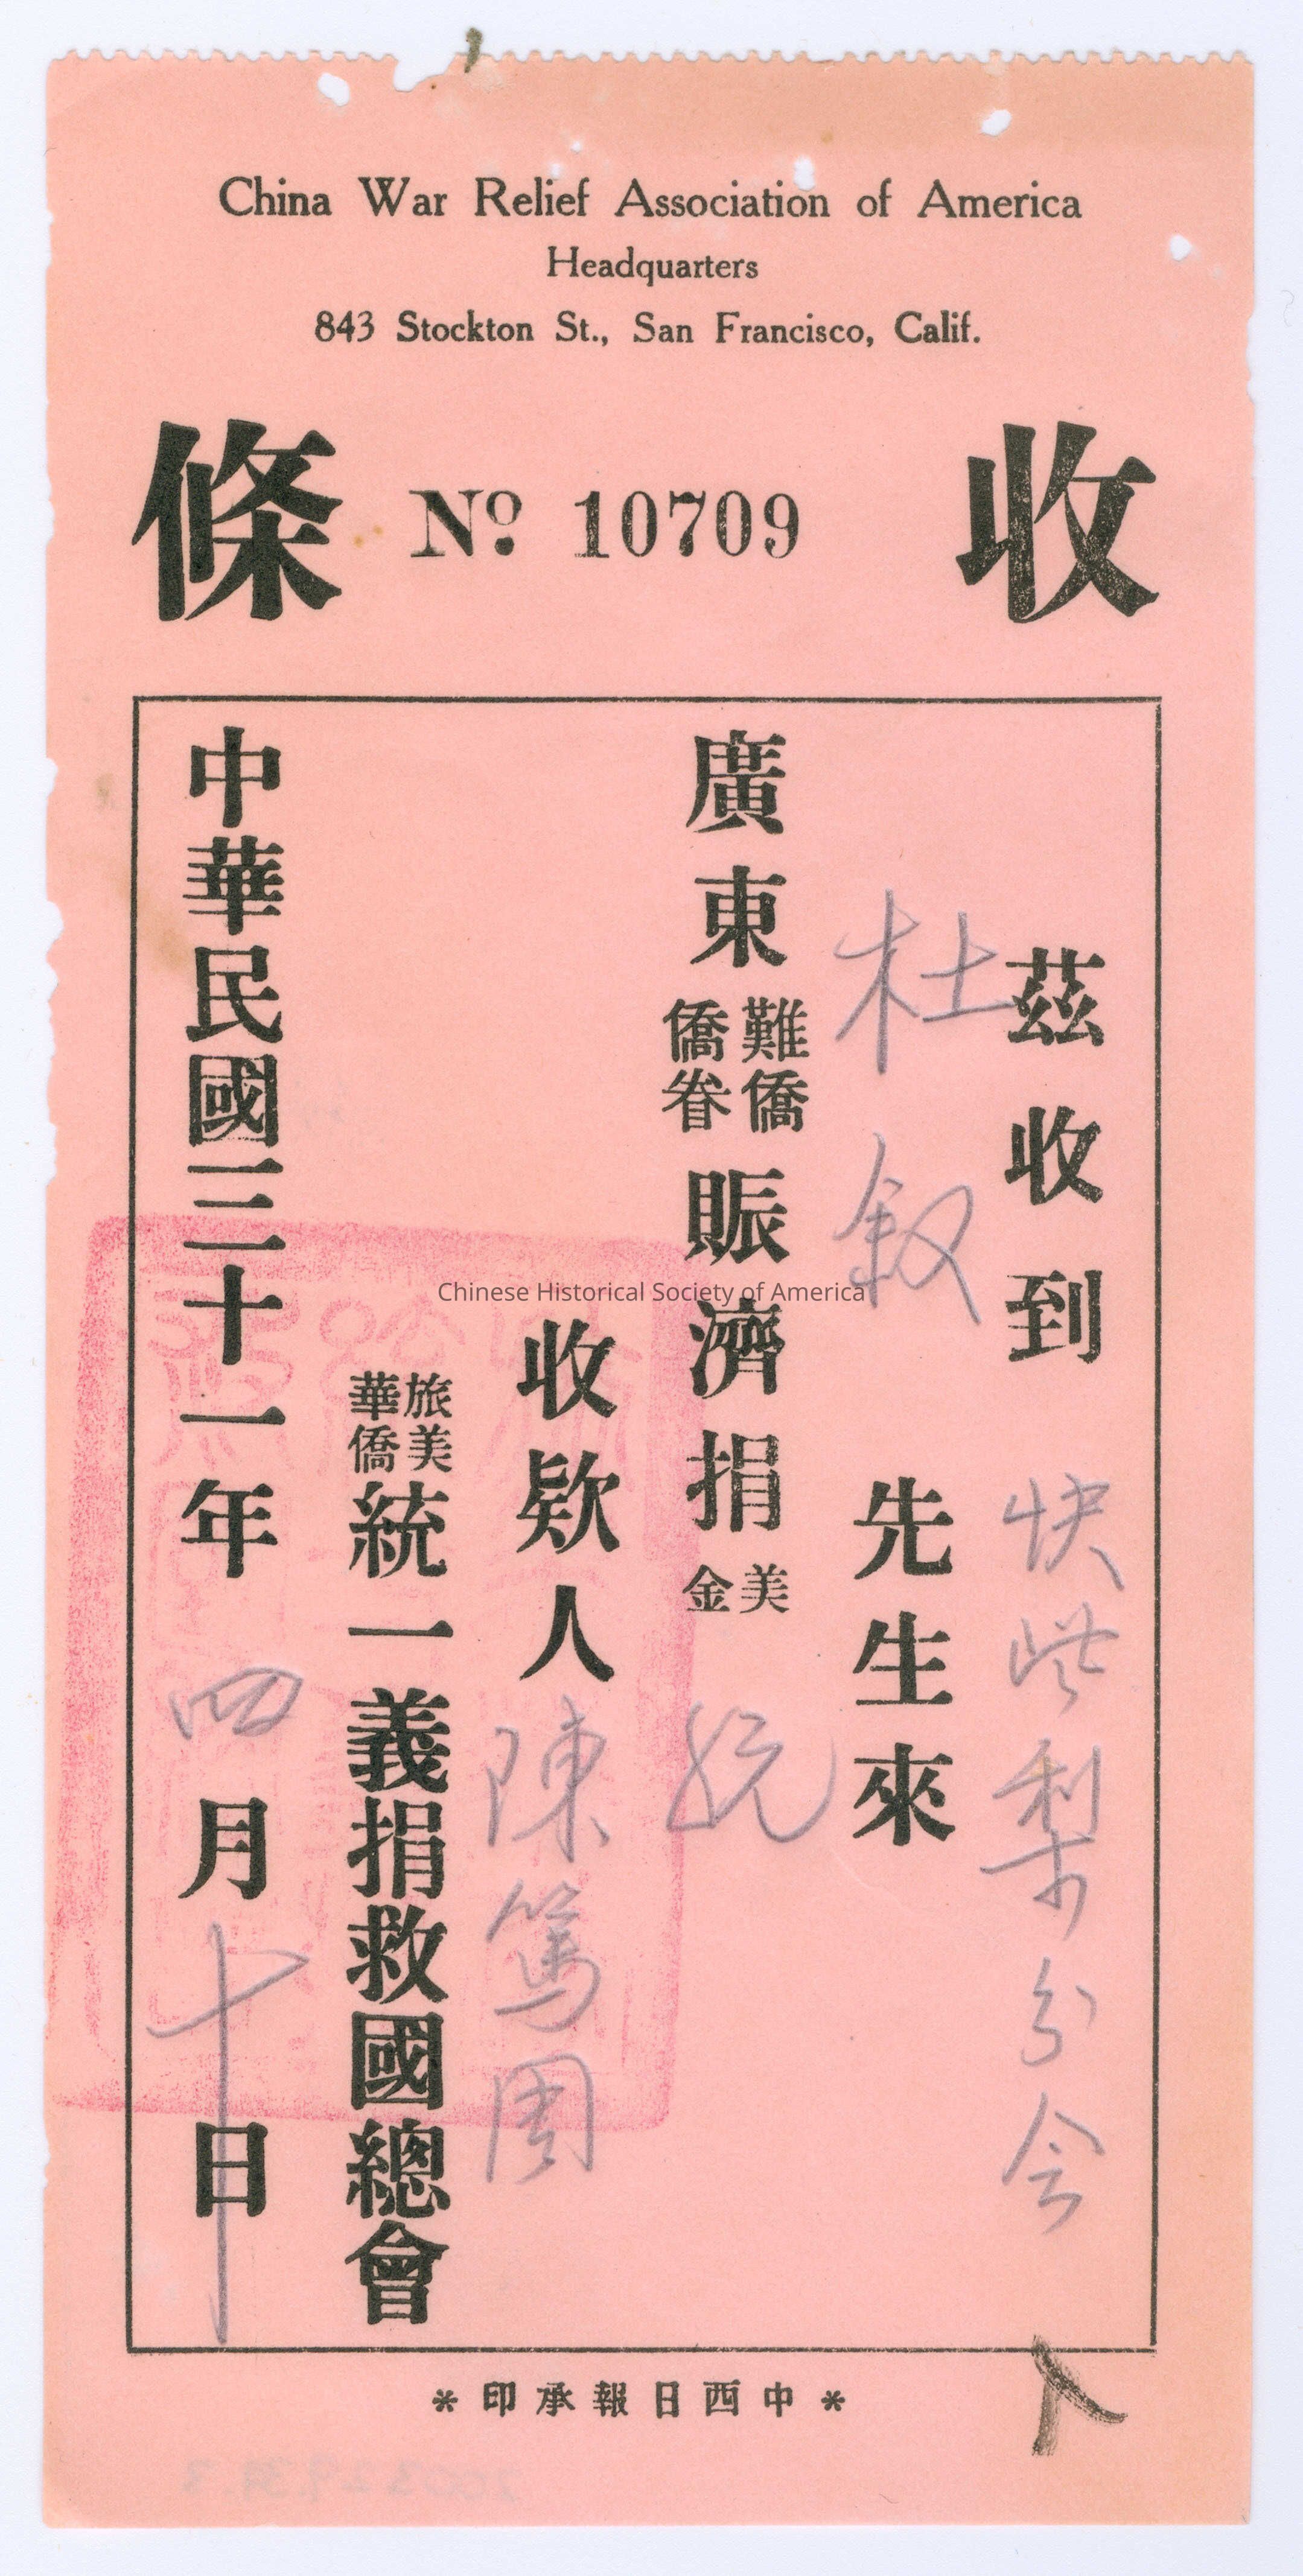 China War Relief Association of America
Headquarters
843 Stockton St., San Francisco, Calif.
收條
Nº 10709
茲收到 快 梨 分会
杜 先生來
廣東難僑僑眷賑濟捐美金
收欵人陳篤周
旅美華僑統一義捐救國總會
中華民國三十一年四月十日
*中西日報承印*
Chinese Historical Society of America